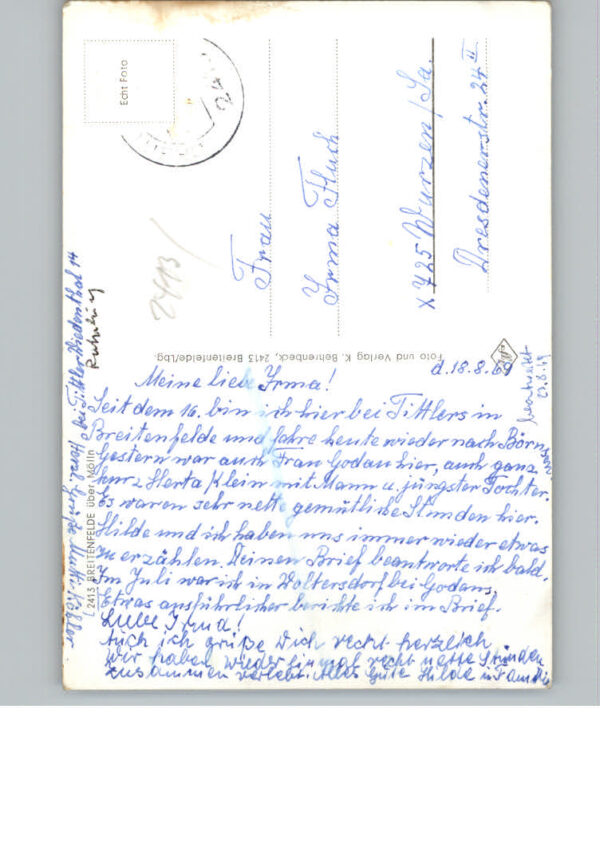 Echt Foto
Frau
Irma Fluch
X725 Wurzen/Sa.
Dresdenerstr. 24 II
2413
Foto und Verlag K. Behrenbeck, 2413 Breitenfelde/Lbg.
d. 18.8.69
Meine liebe Irma!
Seit dem 16. bin ich hier bei Tittlers in
Breitenfelde und fahre heute wieder nach Börnsen
Gestern war auch Frau Godau hier, auch ganz
kurz Herta Klein mit Mann u. jüngster Tochter.
Es waren sehr nette gemütliche Stunden hier.
Hilde und ich haben uns immer wieder etwas
zu erzählen. Deinen Brief beantworte ich bald.
Im Juli war ich in Woltersdorf bei Godaus,
Etwas ausführlicher berichte ich im Brief.
Liebe Irma!
Auch ich grüße Dich recht herzlich
Wir haben wieder einmal recht nette Stunden
zusammen verlebt. Alles Gute Hilde u. Familie
2413 BREITENFELDE über Mölln
Herzl. Grüße Martha
bei Tittler
14
beantwortet